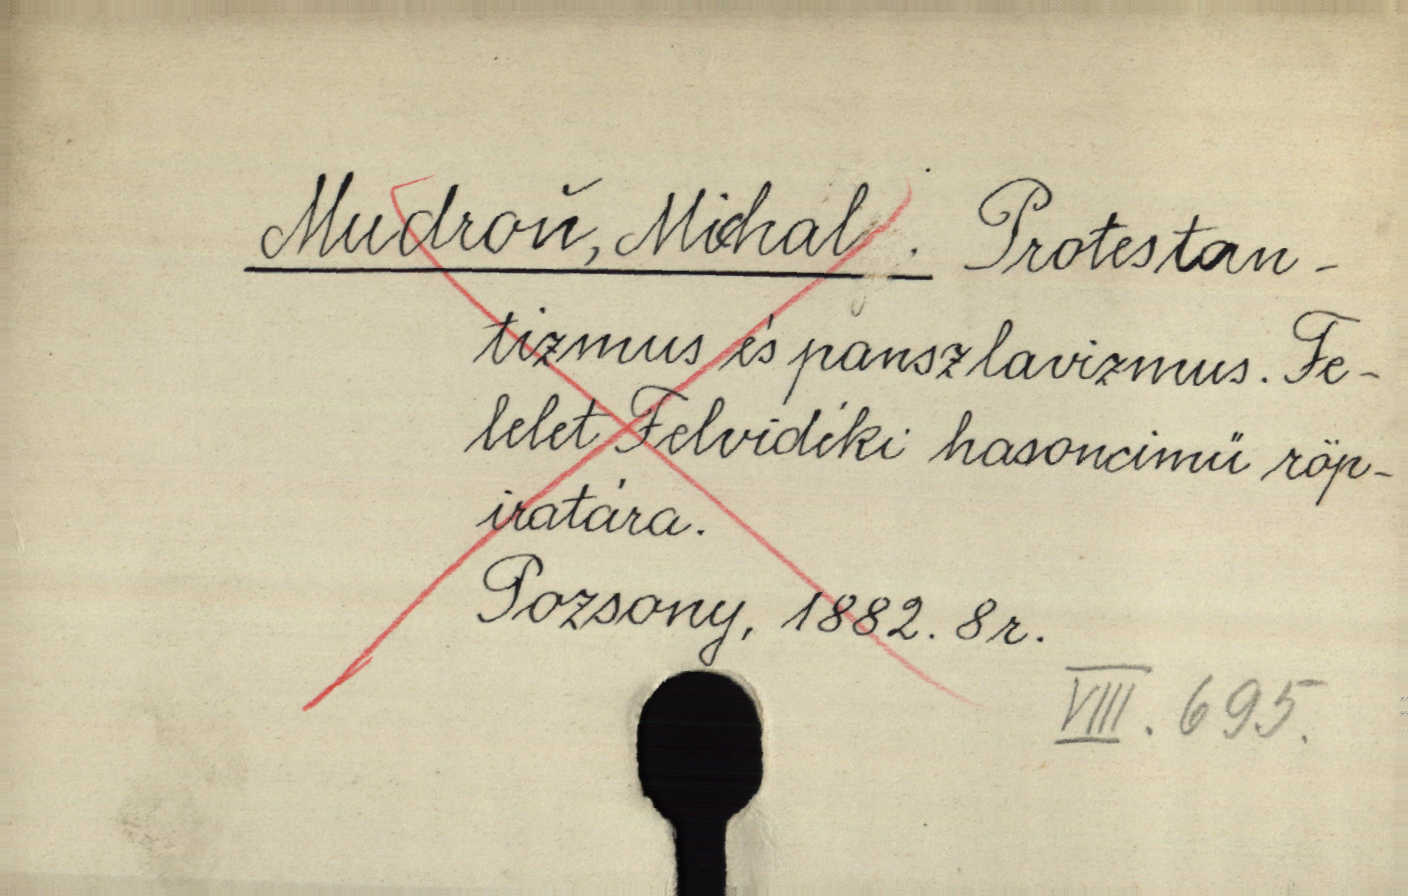 Mudroň, Michal. Protestan-
tizmus és panszlavizmus. Fe-
lelet Felvidéki hasoncimü röp-
iratára.
Pozsony, 1882. 8r.
VIII. 695.